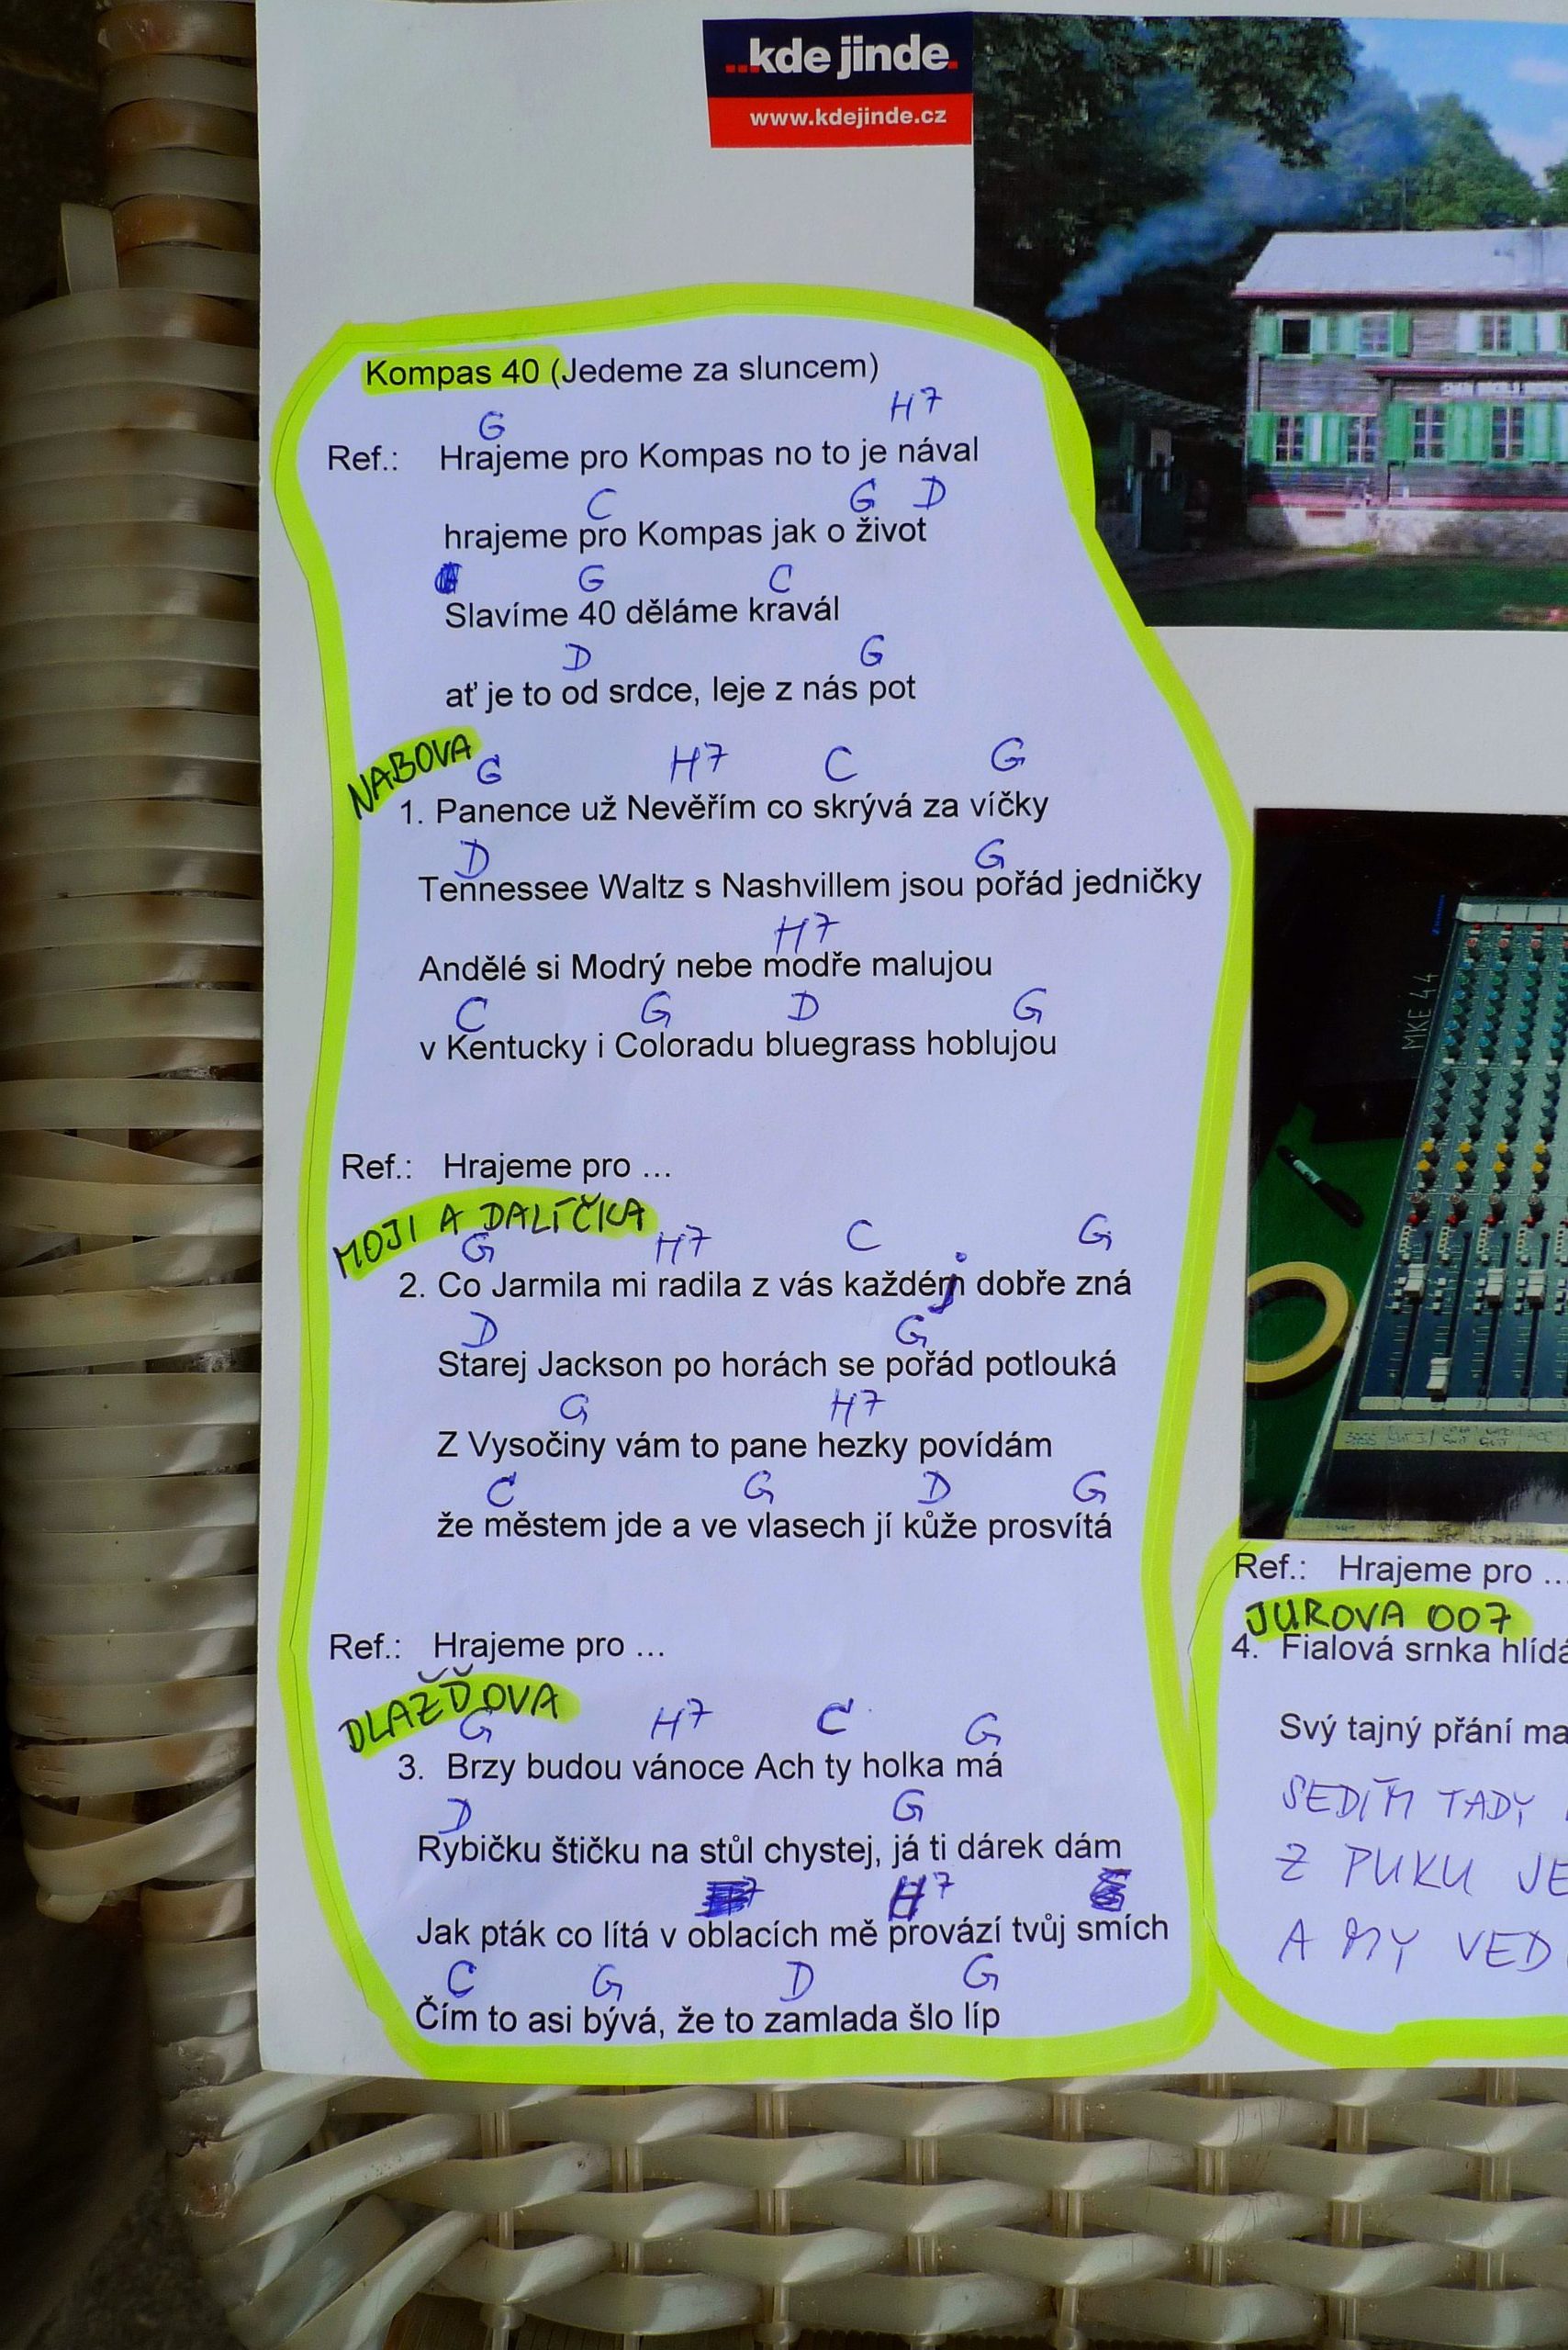 ..kde jinde.
www.kdejinde.cz
Kompas 40 (Jedeme za sluncem)
G H7
Ref.: Hrajeme pro Kompas no to je nával
C G D
hrajeme pro Kompas jak o život
G C
Slavíme 40 děláme kravál
D G
ať je to od srdce, leje z nás pot
NABOVA
G H7 C G
1. Panence už Nevěřím co skrývá za víčky
D G
Tennessee Waltz s Nashvillem jsou pořád jedničky
H7
Andělé si Modrý nebe modře malujou
C G D G
v Kentucky i Coloradu bluegrass hoblujou
Ref.: Hrajeme pro ...
MOJI A DALÍČKA
G H7 C G
2. Co Jarmila mi radila z vás každéj dobře zná
D G
Starej Jackson po horách se pořád potlouká
G H7
Z Vysočiny vám to pane hezky povídám
C G D G
že městem jde a ve vlasech jí kůže prosvítá
Ref.: Hrajeme pro ...
DLAŽĎOVA
G H7 C G
3. Brzy budou vánoce Ach ty holka má
D G
Rybičku štičku na stůl chystej, já ti dárek dám
H7
Jak pták co lítá v oblacích mě provází tvůj smích
C G D G
Čím to asi bývá, že to zamlada šlo líp
MKE44
Ref.: Hrajeme pro ...
JUROVA 007
4. Fialová srnka hlídá
Svý tajný přání ma
SEDÍM TADY
Z PUKU JE
A MY VED